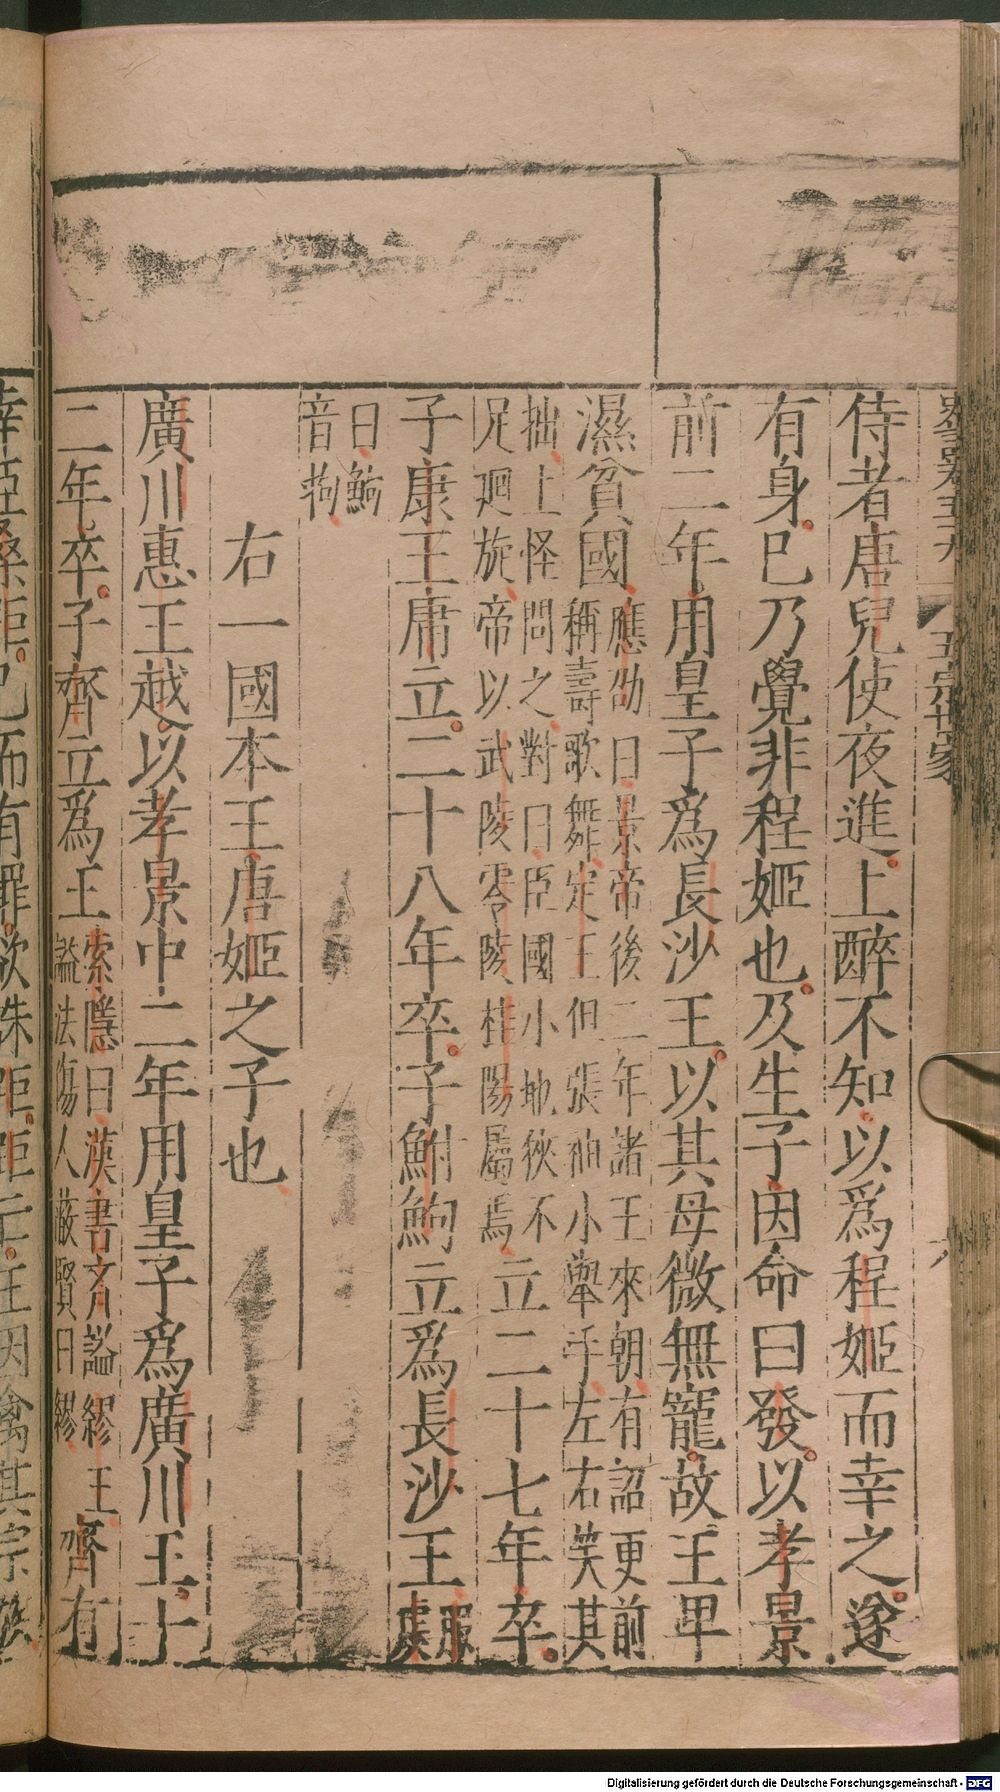 侍者唐兒使夜進上醉不知以爲程姬而幸之遂
有身已乃覺非程姬也及生子因命曰發以孝景
前二年用皇子爲長沙王以其母微無寵故王卑
濕貧國應劭曰景帝後二年諸王來朝有詔更前
稱壽歌舞定王但張袖小舉手左右笑其
拙上怪問之對曰臣國小地狹不
足迴旋帝以武陵零陵桂陽屬焉立二十七年卒
子康王庸立二十八年卒子鮒鮈立爲長沙王服虔
曰鮈
音拘
右一國本王唐姬之子也
廣川惠王越以孝景中二年用皇子爲廣川王十
二年卒子齊立爲王索隱曰漢書齊謚繆王
謚法傷人蔽賢曰繆齊有
幸臣桑距已而有罪欲誅距距亡王因禽其宗族
五宗世家
六
Digitalisierung gefördert durch die Deutsche Forschungsgemeinschaft - DFG